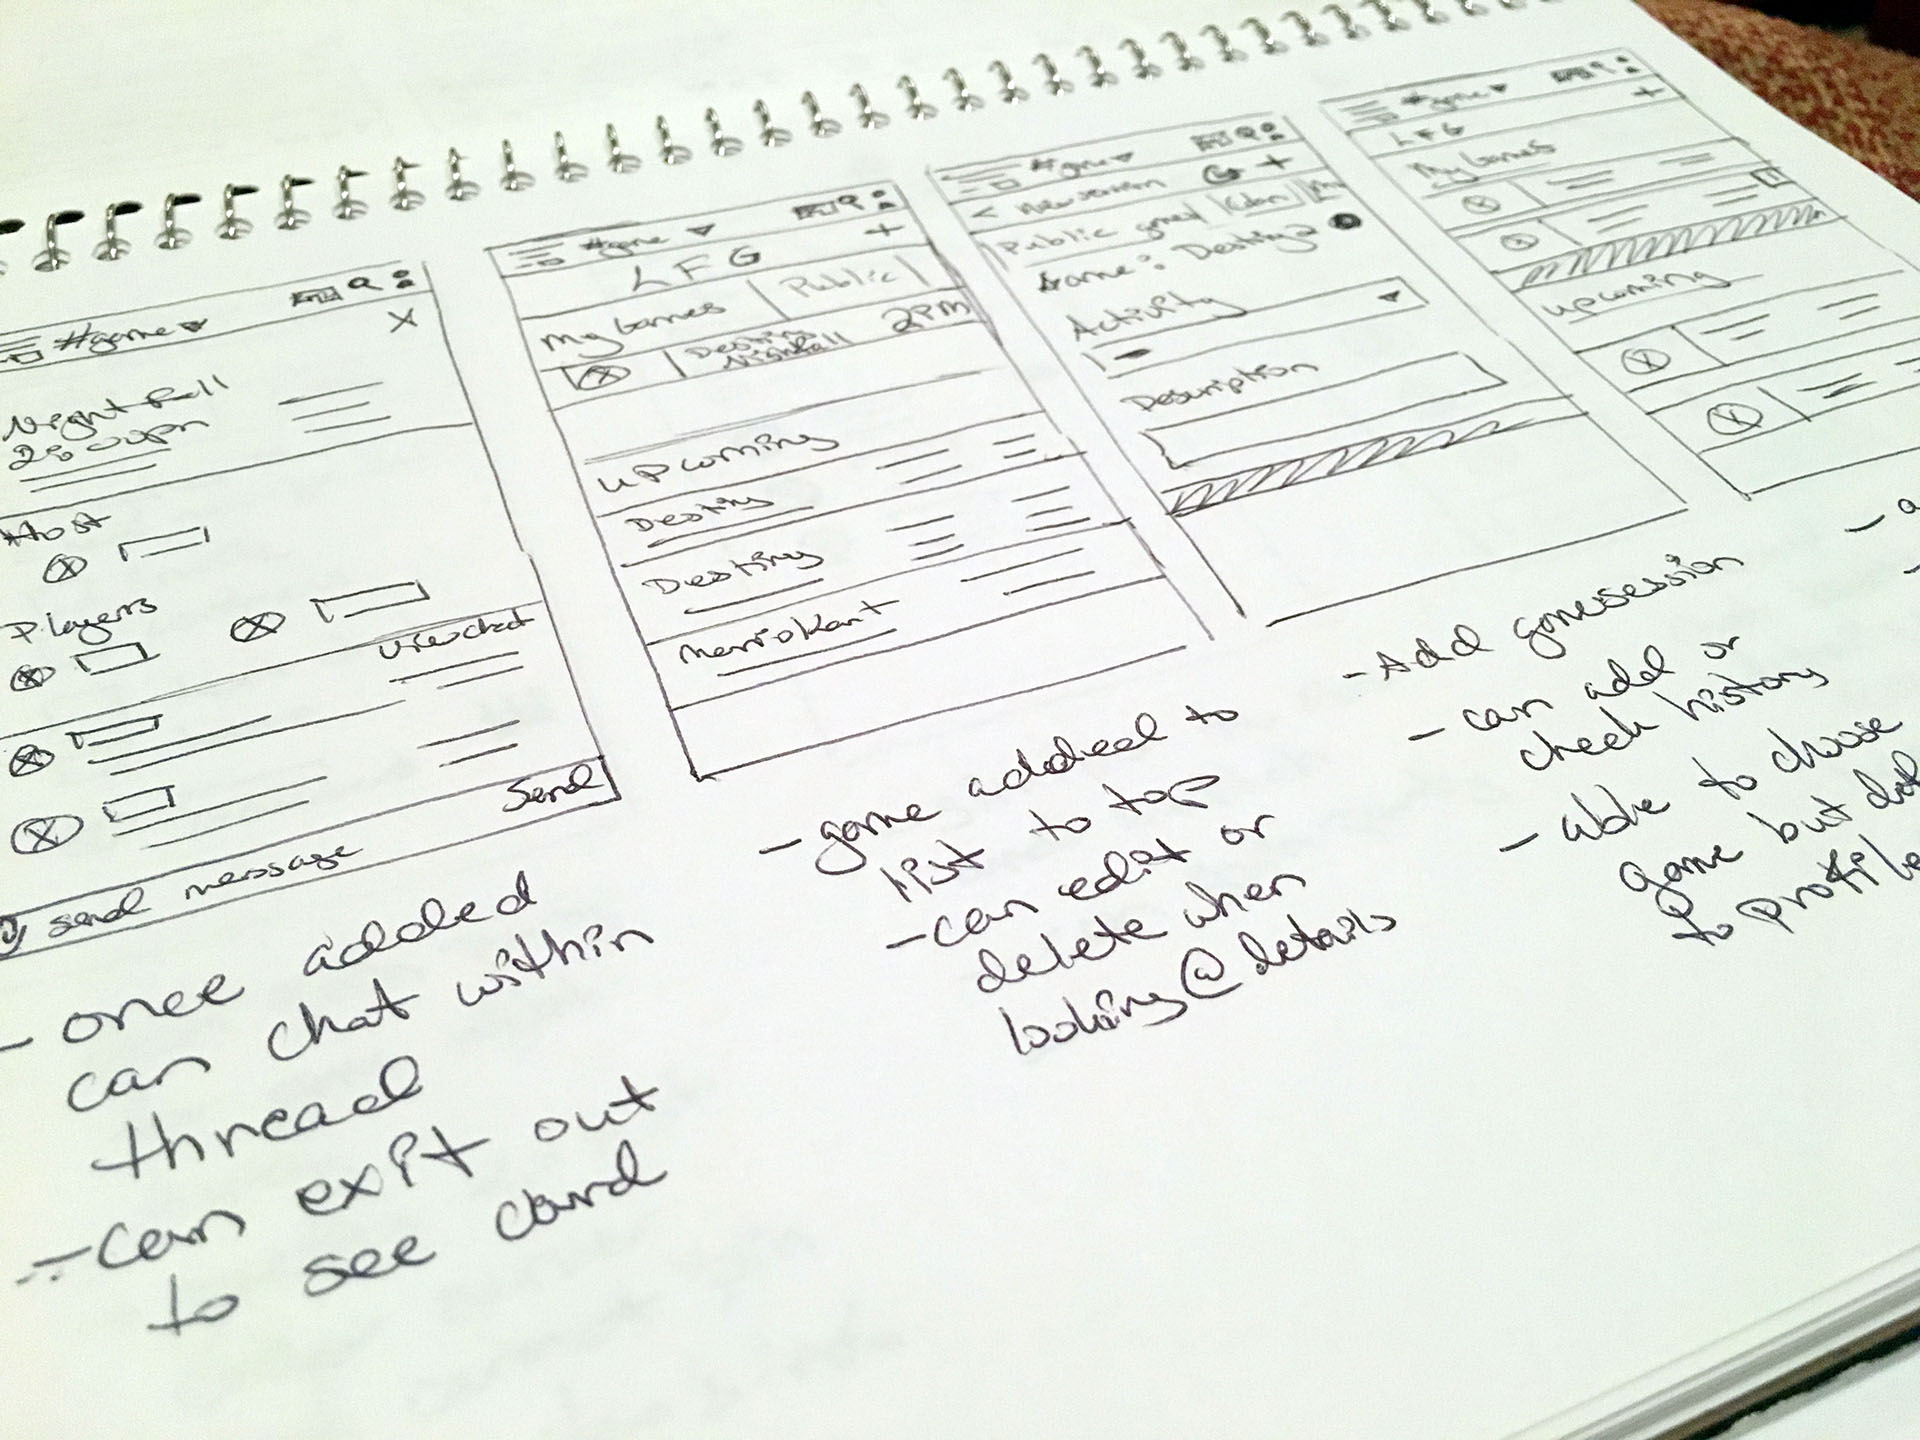 #game
X
Nightfall
2:00pm
Host
Players
view chat
Send
send message
- once added
can chat within
thread
- can exit out
to see card
#game
LFG
+
My Games
Public
Destiny
Nightfall
2PM
upcoming
Destiny
Destiny
Mariokart
- game added to
list to top
- can edit or
delete when
looking @ details
#game
< New session
+
Public
Clan
Game: Destiny 2
Activity
Description
- Add gamesession
- can add or
check history
- able to choose
game but
to profile
#game
LFG
+
My Games
upcoming